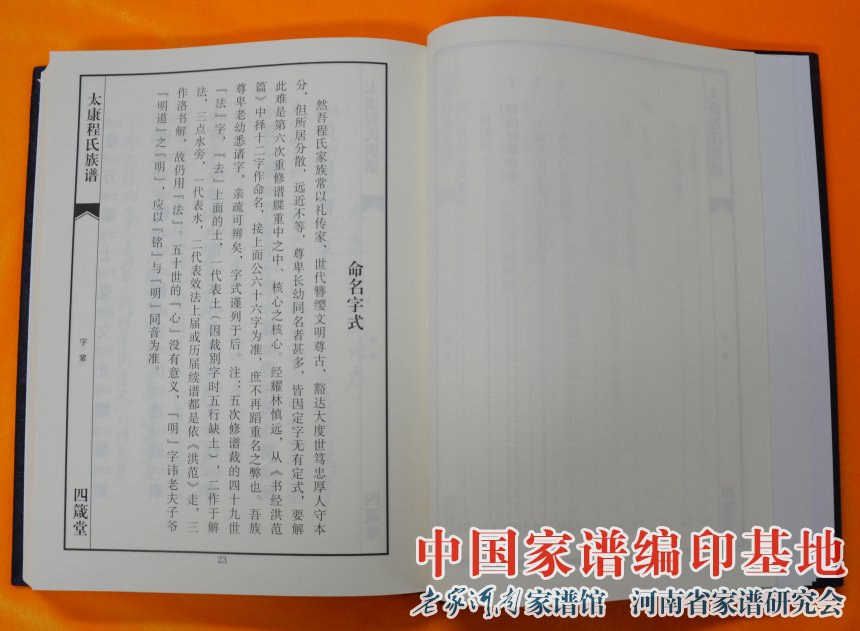 命名字式
然吾程氏家族常以礼传家，世代簪缨文明尊古，豁达大度世笃忠厚人守本
分，但所居分散，远近不等，尊卑长幼同名者甚多，皆因定字无有定式，要解
此难是第六次重修谱牒重中之中、核心之核心。经耀林慎远，从《书经洪范
篇》中择十二字作命名，接上面公六十六字为准，庶不再蹈重名之弊也。吾族
尊卑老幼悉诸字，亲疏可辨矣，字式谨列于后。注：五次修谱裁的四十九世
『法』字，『去』上面的土，一代表土（因裁别字时五行缺土），二作于解
法，三点水旁，一代表水，二代表效法上届或历届续谱都是依《洪范》走，三
作洛书解，故仍用『法』。五十世的『心』没有意义，『明』字讳老夫子爷
『明道』之『明』，应以『铭』与『明』同音为准。
太康程氏族谱
字辈
四箴堂
23
中国家谱编印基地
老家河南家谱馆 河南省家谱研究会